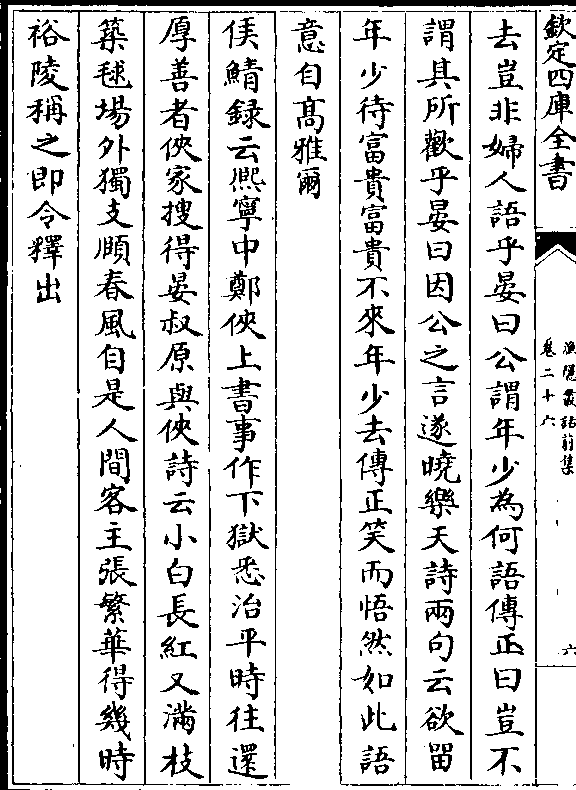 欽定四庫全書
漁隱叢話前集
卷二十六
六
去豈非婦人語乎晏曰公謂年少為何語傳正曰豈不
謂其所歡乎晏曰因公之言遂曉樂天詩兩句云欲留
年少待富貴富貴不來年少去傳正笑而悟然如此語
意自髙雅爾
侯鯖録云熈寧中鄭俠上書事作下獄悉治平時往還
厚善者俠家搜得晏叔原與俠詩云小白長紅又滿枝
築毬場外獨支頤春風自是人間客主張繁華得幾時
裕陵稱之即令釋出